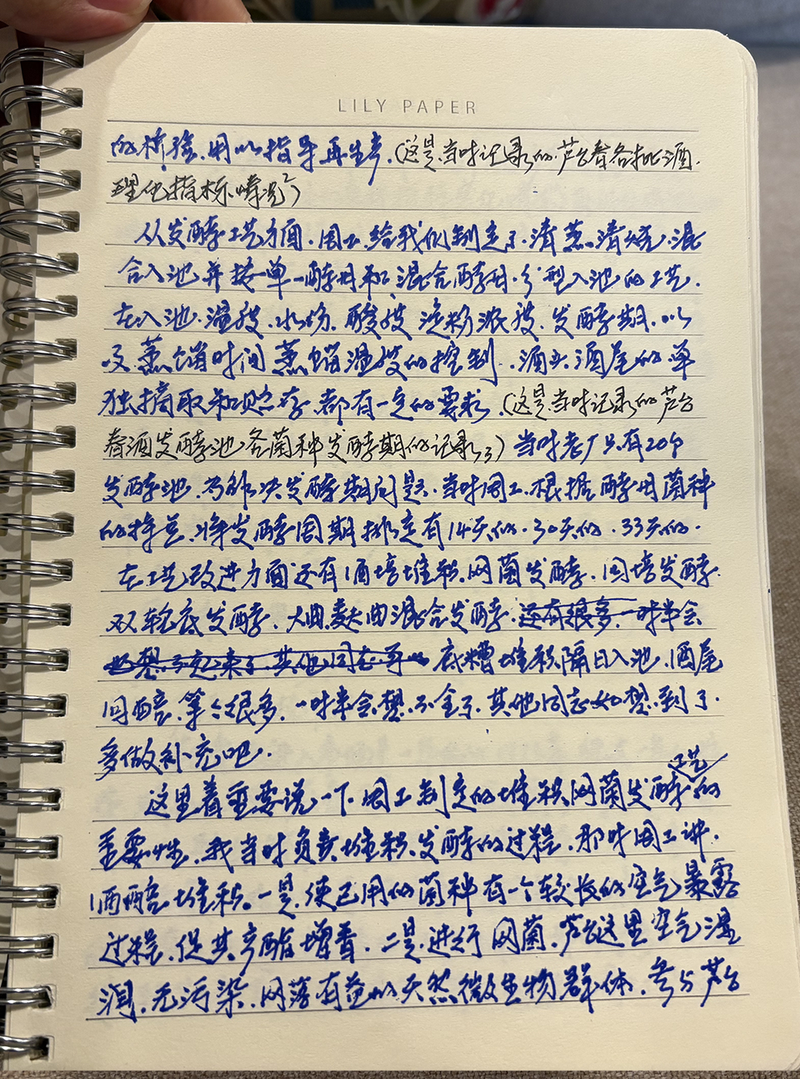 LILY PAPER
的桥梁.用以指导再生产.(这是当时记录的.芦台春各批酒.
理化指标情况2)
从发酵工艺方面.周工给我们制定了.清蒸.清烧.混
合入池并按单一酵母和混合酵母.分型入池的工艺.
在入池.温度.水份.酸度.淀粉浓度.发酵期.以
及蒸馏时间蒸馏温度的控制.酒头.酒尾的单
独摘取和贮存.都有一定的要求.(这是当时记录的芦台
春酒发酵池各菌种发酵期的记录3)当时老厂只有20个
发酵池.为解决发酵期问题.当时周工.根据酵母菌种
的特点.将发酵周期排定有14天的.30天的.33天的.
在工艺改进方面还有酒培堆积.网菌发酵.回培发酵.
双轮底发酵.大曲.麸曲混合发酵.还有很多.一时半会
想不起来了.其他同志再 底糟堆积隔日入池.酒尾
回醅.等等很多.一时半会想不全了.其他同志如想到了.
多做补充吧.
这里着重要说一下.周工制定的堆积网菌发酵工艺的
重要性.我当时负责堆积.发酵的过程.那时周工讲.
酒醅堆积.一是.使已用的菌种有一个较长的空气暴露
过程.促其产酯增香.二是.进行网菌.芦台这里空气湿
润.无污染.网落有益的天然微生物群体.参与芦台